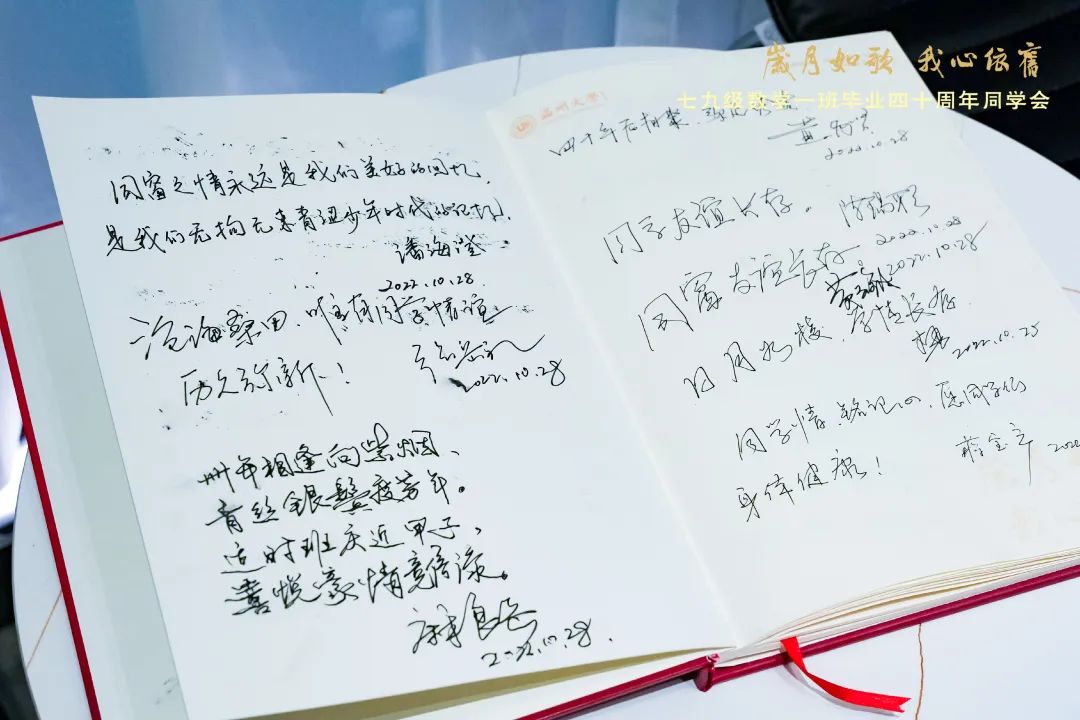 歲月如歌 我心依舊
七九级数学一班毕业四十周年同学会
同窗之情永远是我们美好的回忆,
是我们无拘无束青涩少年时代的记忆!
潘海澄
2022.10.28
沧海桑田,唯有同学情谊
历久弥新!
2022.10.28
卌年相逢向紫烟、
青丝银鬓疑芳年。
适时班庆近甲子,
喜悦豪情竟倍添。
2022.10.28.
温州大学
四十年后相聚,
黄
2022.10.28
同学友谊长存。
2022.10.28
同窗友谊长存。
2022.10.28
日月如梭,学情长存
2022.10.28
同学情,铭记心,愿同学们
身体健康!
蒋金
202